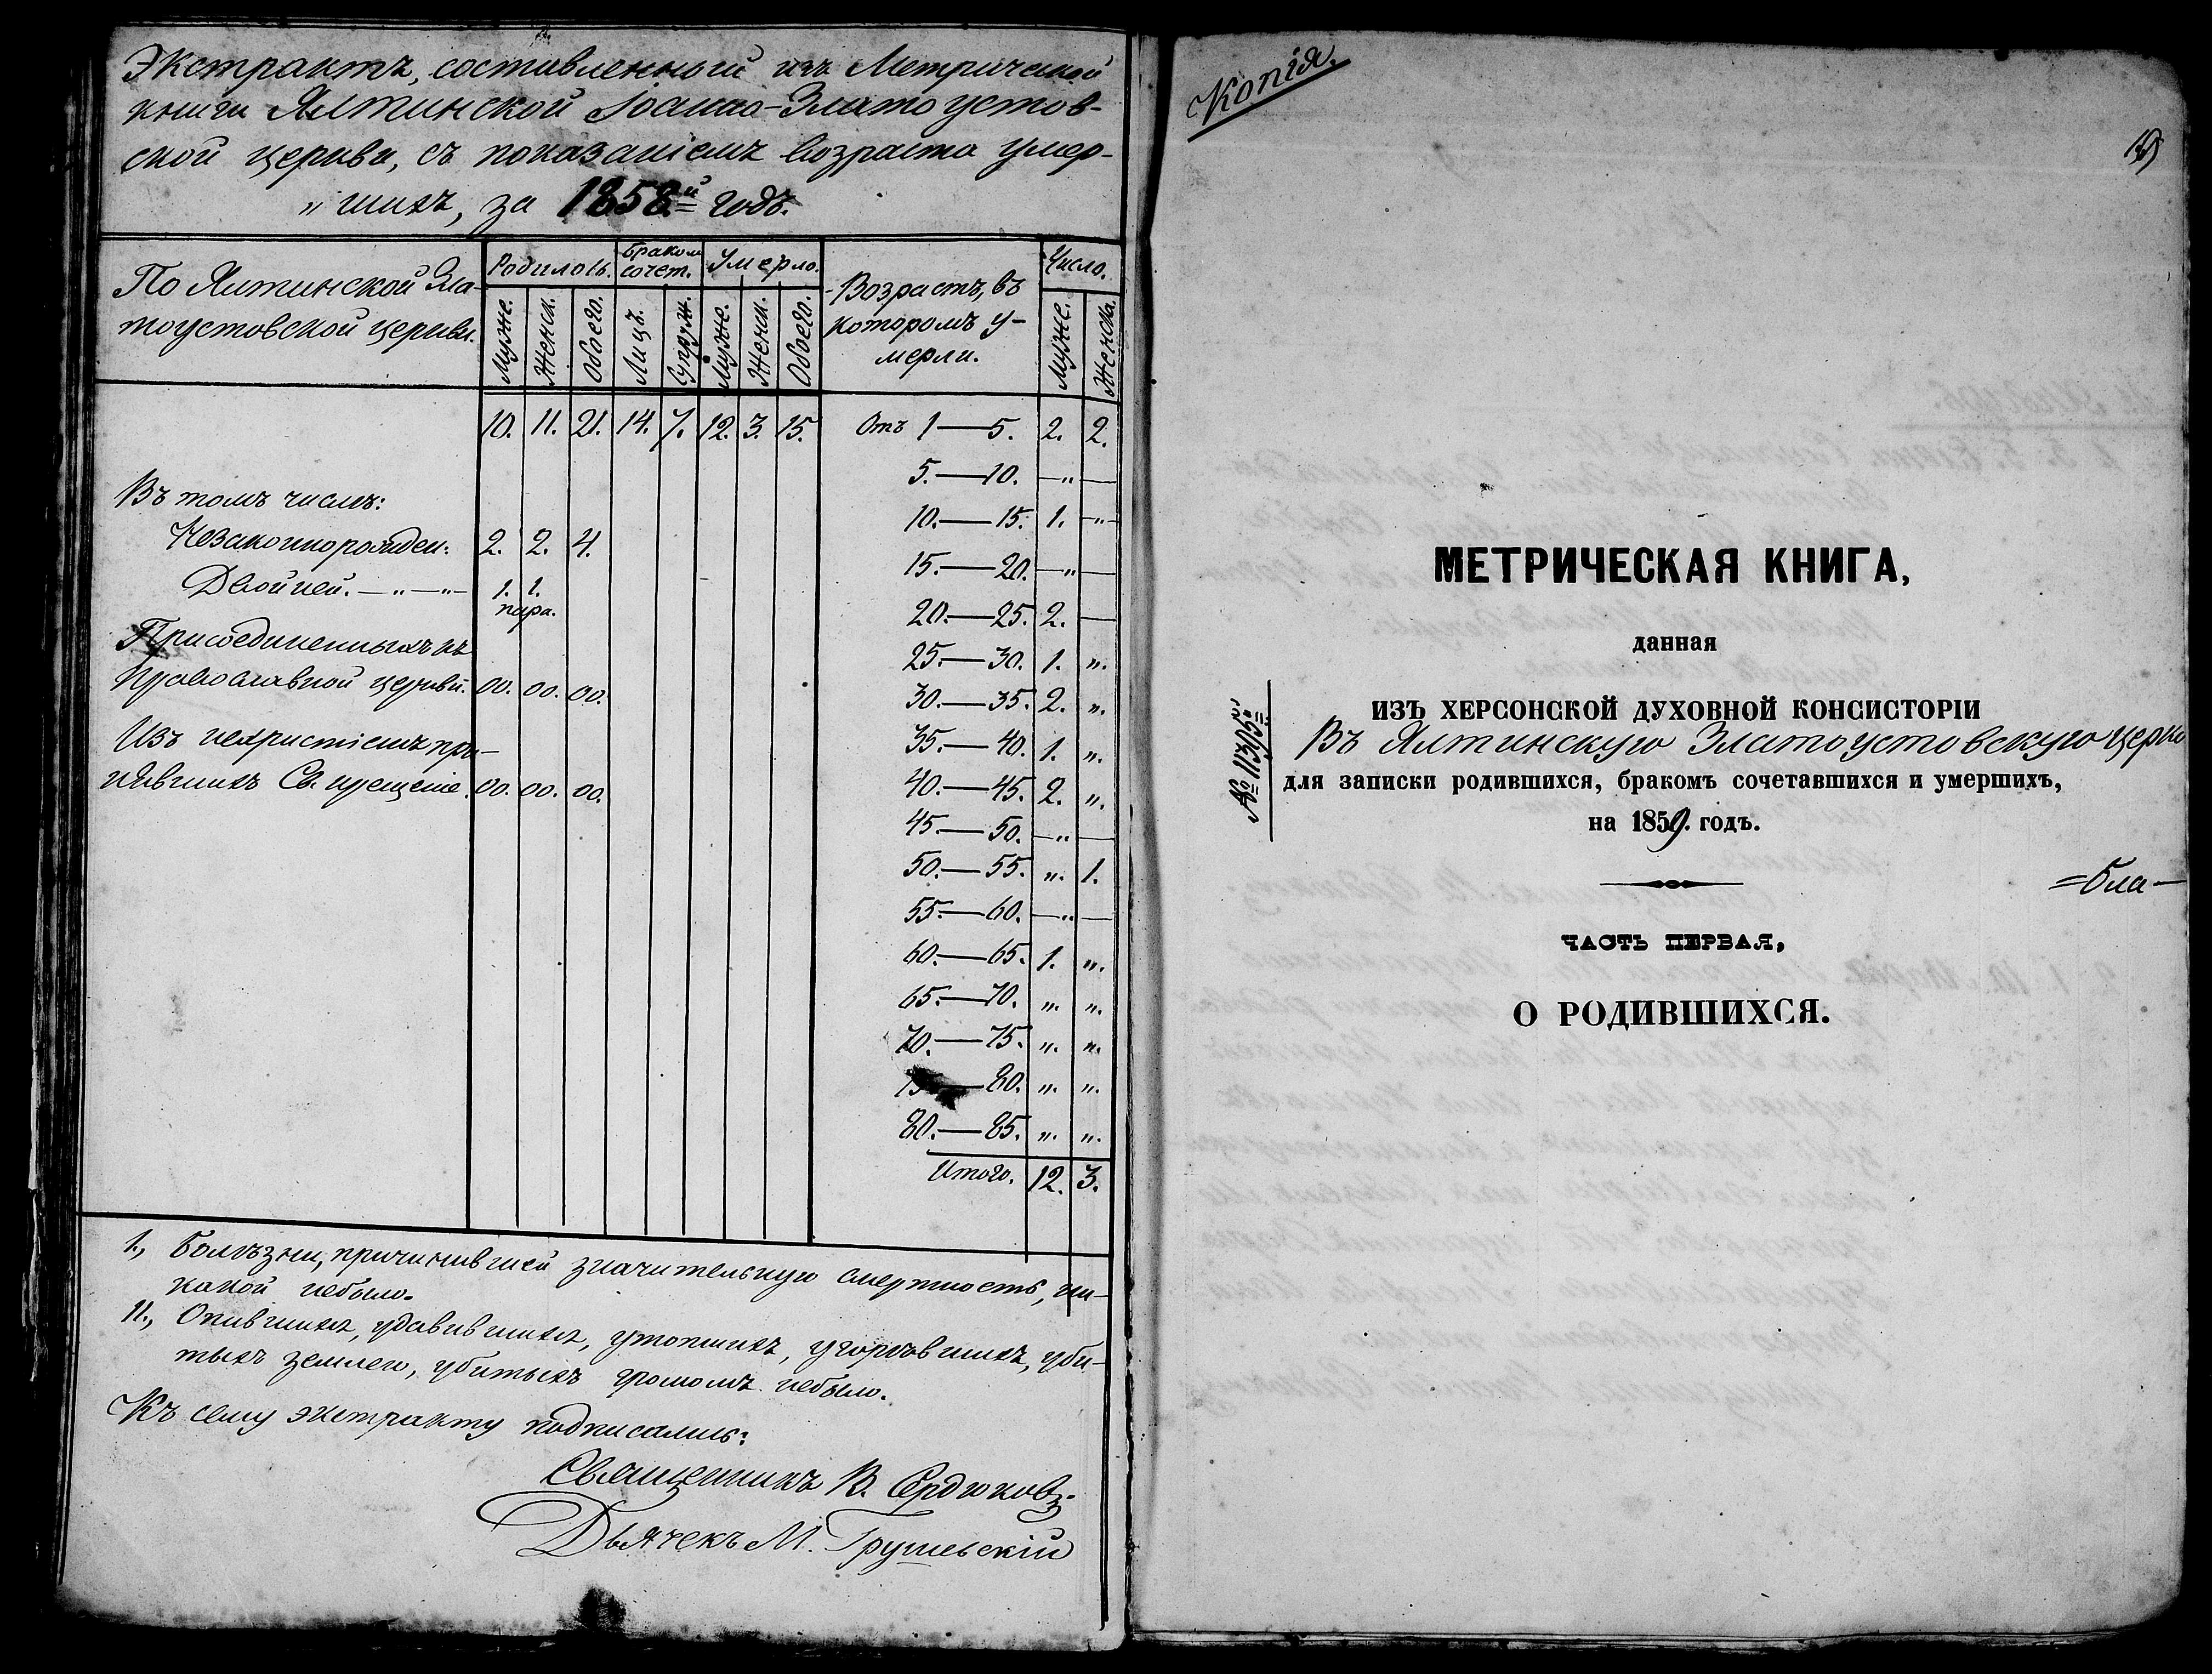 Экстрактъ, составленный изъ Метрической
книги Ялтинской Іоанно-Златоустов-
ской церкви, съ показаніемъ возраста умер-
„шихъ, за 1858й годъ.
По Ялтинской Зла-
тоустовской церкви.
Родилось.
Браком сочет.
Умерло.
Возрастъ, въ
которомъ у-
мерли.
Число.
Муже. Женск. Обоего. Лицъ. Супруж. Муже. Женск. Обоего. Муже. Женска.
10. 11. 21. 14. 7. 12. 3. 15. Отъ 1—5. 2. 2.
5.—10. —„—
10.—15. 1. —„—
15.—20. —„—
20.—25. 2. —
25.—30. 1. „.
30.—35. 2. „.
35.—40. 1. „.
40.—45. 2. „.
45.—50. —„—
50.—55. „. 1.
55.—60. —„—
60.—65. 1. „.
65.—70. „. „.
70.—75. „. „.
75.—80. „. „.
80.—85. „. „.
Итого. 12. 3.
Въ томъ числѣ:
Незаконнорожден: 2. 2. 4.
Двойней. —„—„— 1. 1.
пара.
Присоединенныхъ къ
православной церкви. 00. 00. 00.
Изъ нехристіанъ при-
нявшихъ Св. крещеніе. 00. 00. 00.
1., Болѣзни, причинившей значительную смертность, ни-
какой небыло.
11., Опившихся, удавившихся, утопшихъ, угорѣвшихъ, уби-
тыхъ землею, убитыхъ громомъ небыло.
Къ сему экстракту подписались:
Священникъ В. Сердюковъ.
Дьячекъ М. Грушевскій
Копія.
МЕТРИЧЕСКАЯ КНИГА,
данная
ИЗЪ ХЕРСОНСКОЙ ДУХОВНОЙ КОНСИСТОРІИ
Въ Ялтинскую Златоустовскую церко
для записки родившихся, бракомъ сочетавшихся и умершихъ,
на 1859. годъ.
№ 11305
=бла—
ЧАСТЬ ПЕРВАЯ,
О РОДИВШИХСЯ.